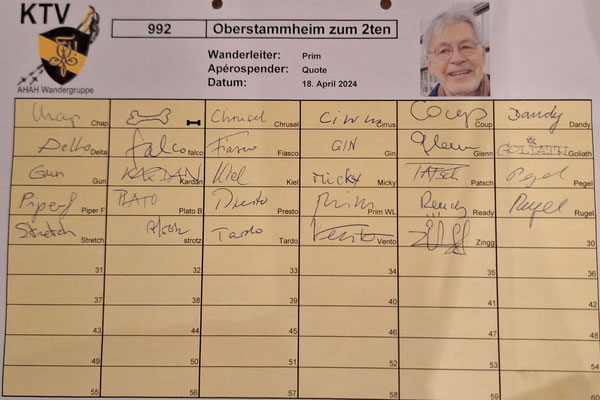 KTV
AHAH Wandergruppe
992 Oberstammheim zum 2ten
Wanderleiter: Prim
Apérospender: Quote
Datum: 18. April 2024
Chap Chrusel Cirrus Coup Dandy
Chap Chrusel Cirrus Coup Dandy
Delta falco Fiasco GIN Glenn GOLIATH
Delta falco Fiasco Gin Glenn Goliath
Gun KARDAN Kiel Micky Patsch Pegel
Gun Kardan Kiel Micky Patsch Pegel
Piperf PLATO Presto Prim Ready Rugel
Piper F Plato B Presto Prim WL Ready Rugel
Stretch strotz Tardo Vento Zingg
Stretch strotz Tardo Vento Zingg 30
31 32 33 34 35 36
37 38 39 40 41 42
43 44 45 46 47 48
49 50 51 52 53 54
55 56 57 58 59 60